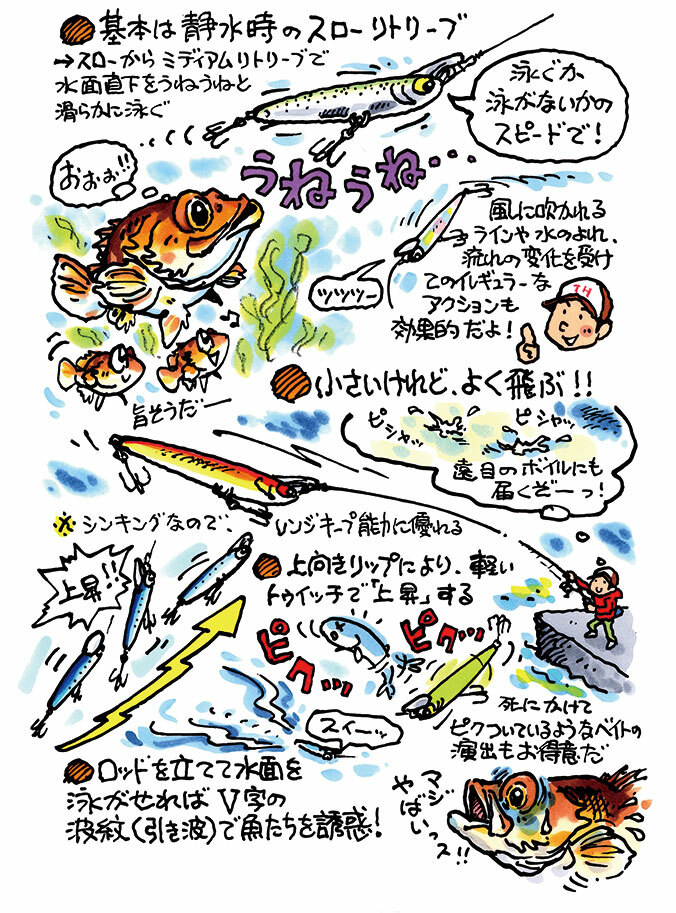 ●基本は静水時のスローリトリーブ
→スローからミディアムリトリーブで
水面直下をうねうねと
滑らかに泳ぐ
泳ぐか
泳がないかの
スピードで!
おぉぉ!!
うねうね…
風に吹かれる
ラインや水のよれ、
流れの変化を受け
てのイレギュラーな
アクションも
効果的だよ!
TH
ツツツー
♪
旨そうだー
●小さいけれど、よく飛ぶ!!
ピシャッ
ピシャッ
遠目のボイルにも
届くぞーっ!
※シンキングなので、レンジキープ能力に優れる
上昇!!
●上向きリップにより、軽い
トゥイッチで「上昇」する
ピクッッ
ピクッッ
スイーッ
死にかけて
ピクついているようなベイトの
演出もお得意だ
●ロッドを立てて水面を
泳がせればV字の
波紋(引き波)で魚たちを誘惑!
マジ
やばいっス!!